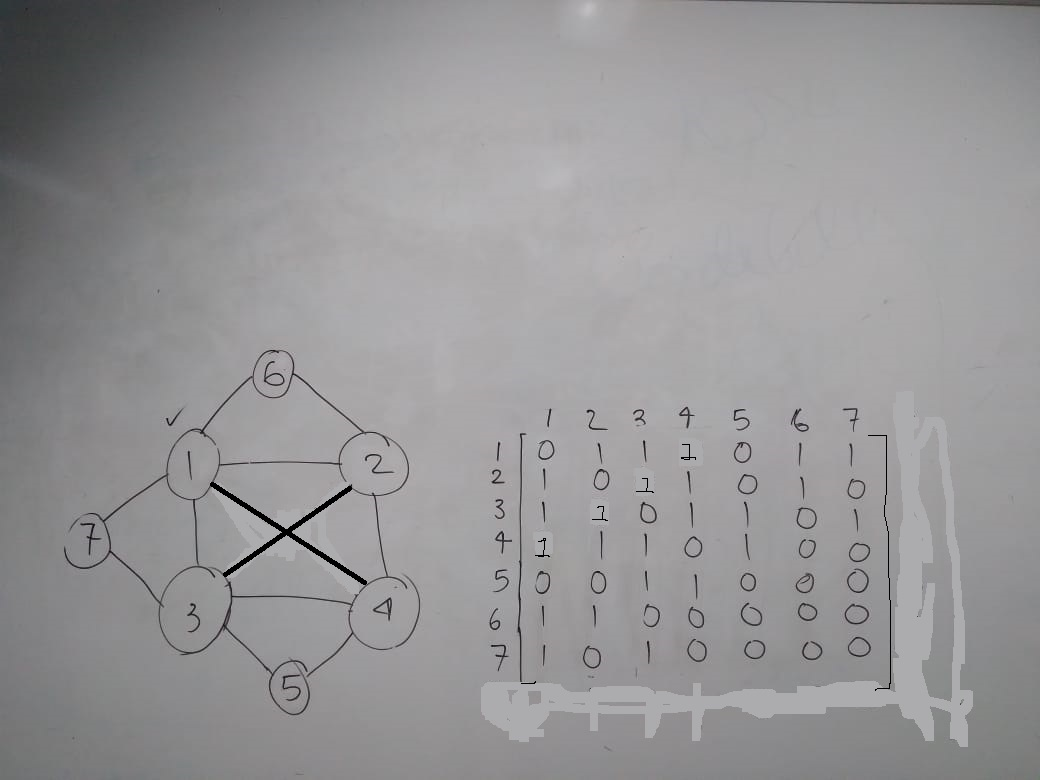 6
1 2
7
3 4
5
1 2 3 4 5 6 7
1 0 1 1 1 0 1 1
2 1 0 1 1 0 1 0
3 1 1 0 1 1 0 1
4 1 1 1 0 1 0 0
5 0 0 1 1 0 0 0
6 1 1 0 0 0 0 0
7 1 0 1 0 0 0 0